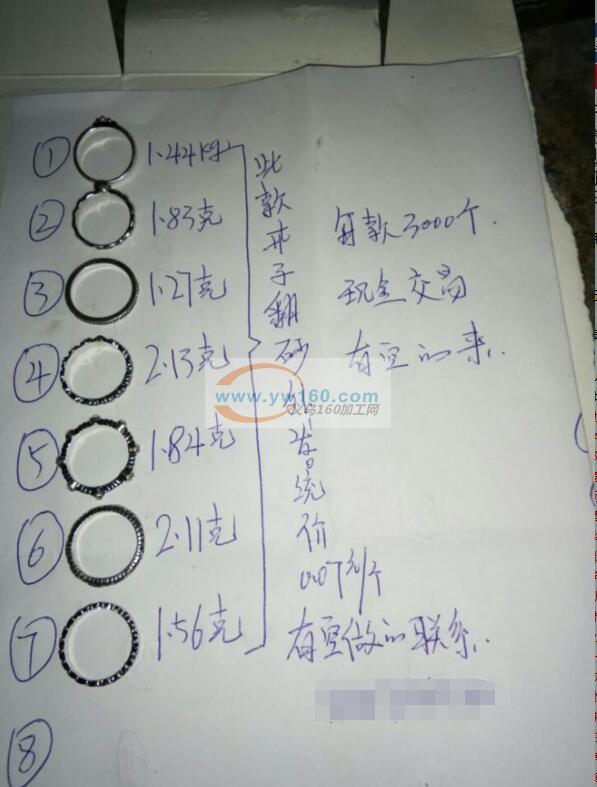 ① 1.44kg
② 1.83克
③ 1.27克
④ 2.13克
⑤ 1.84克
⑥ 2.11克
⑦ 1.56克
⑧
此款戒子翻砂
统价
0.07元/个
每款3000个.
现金交易
有空的来.
有空做的联系..
www.yw160.com
义乌160加工网